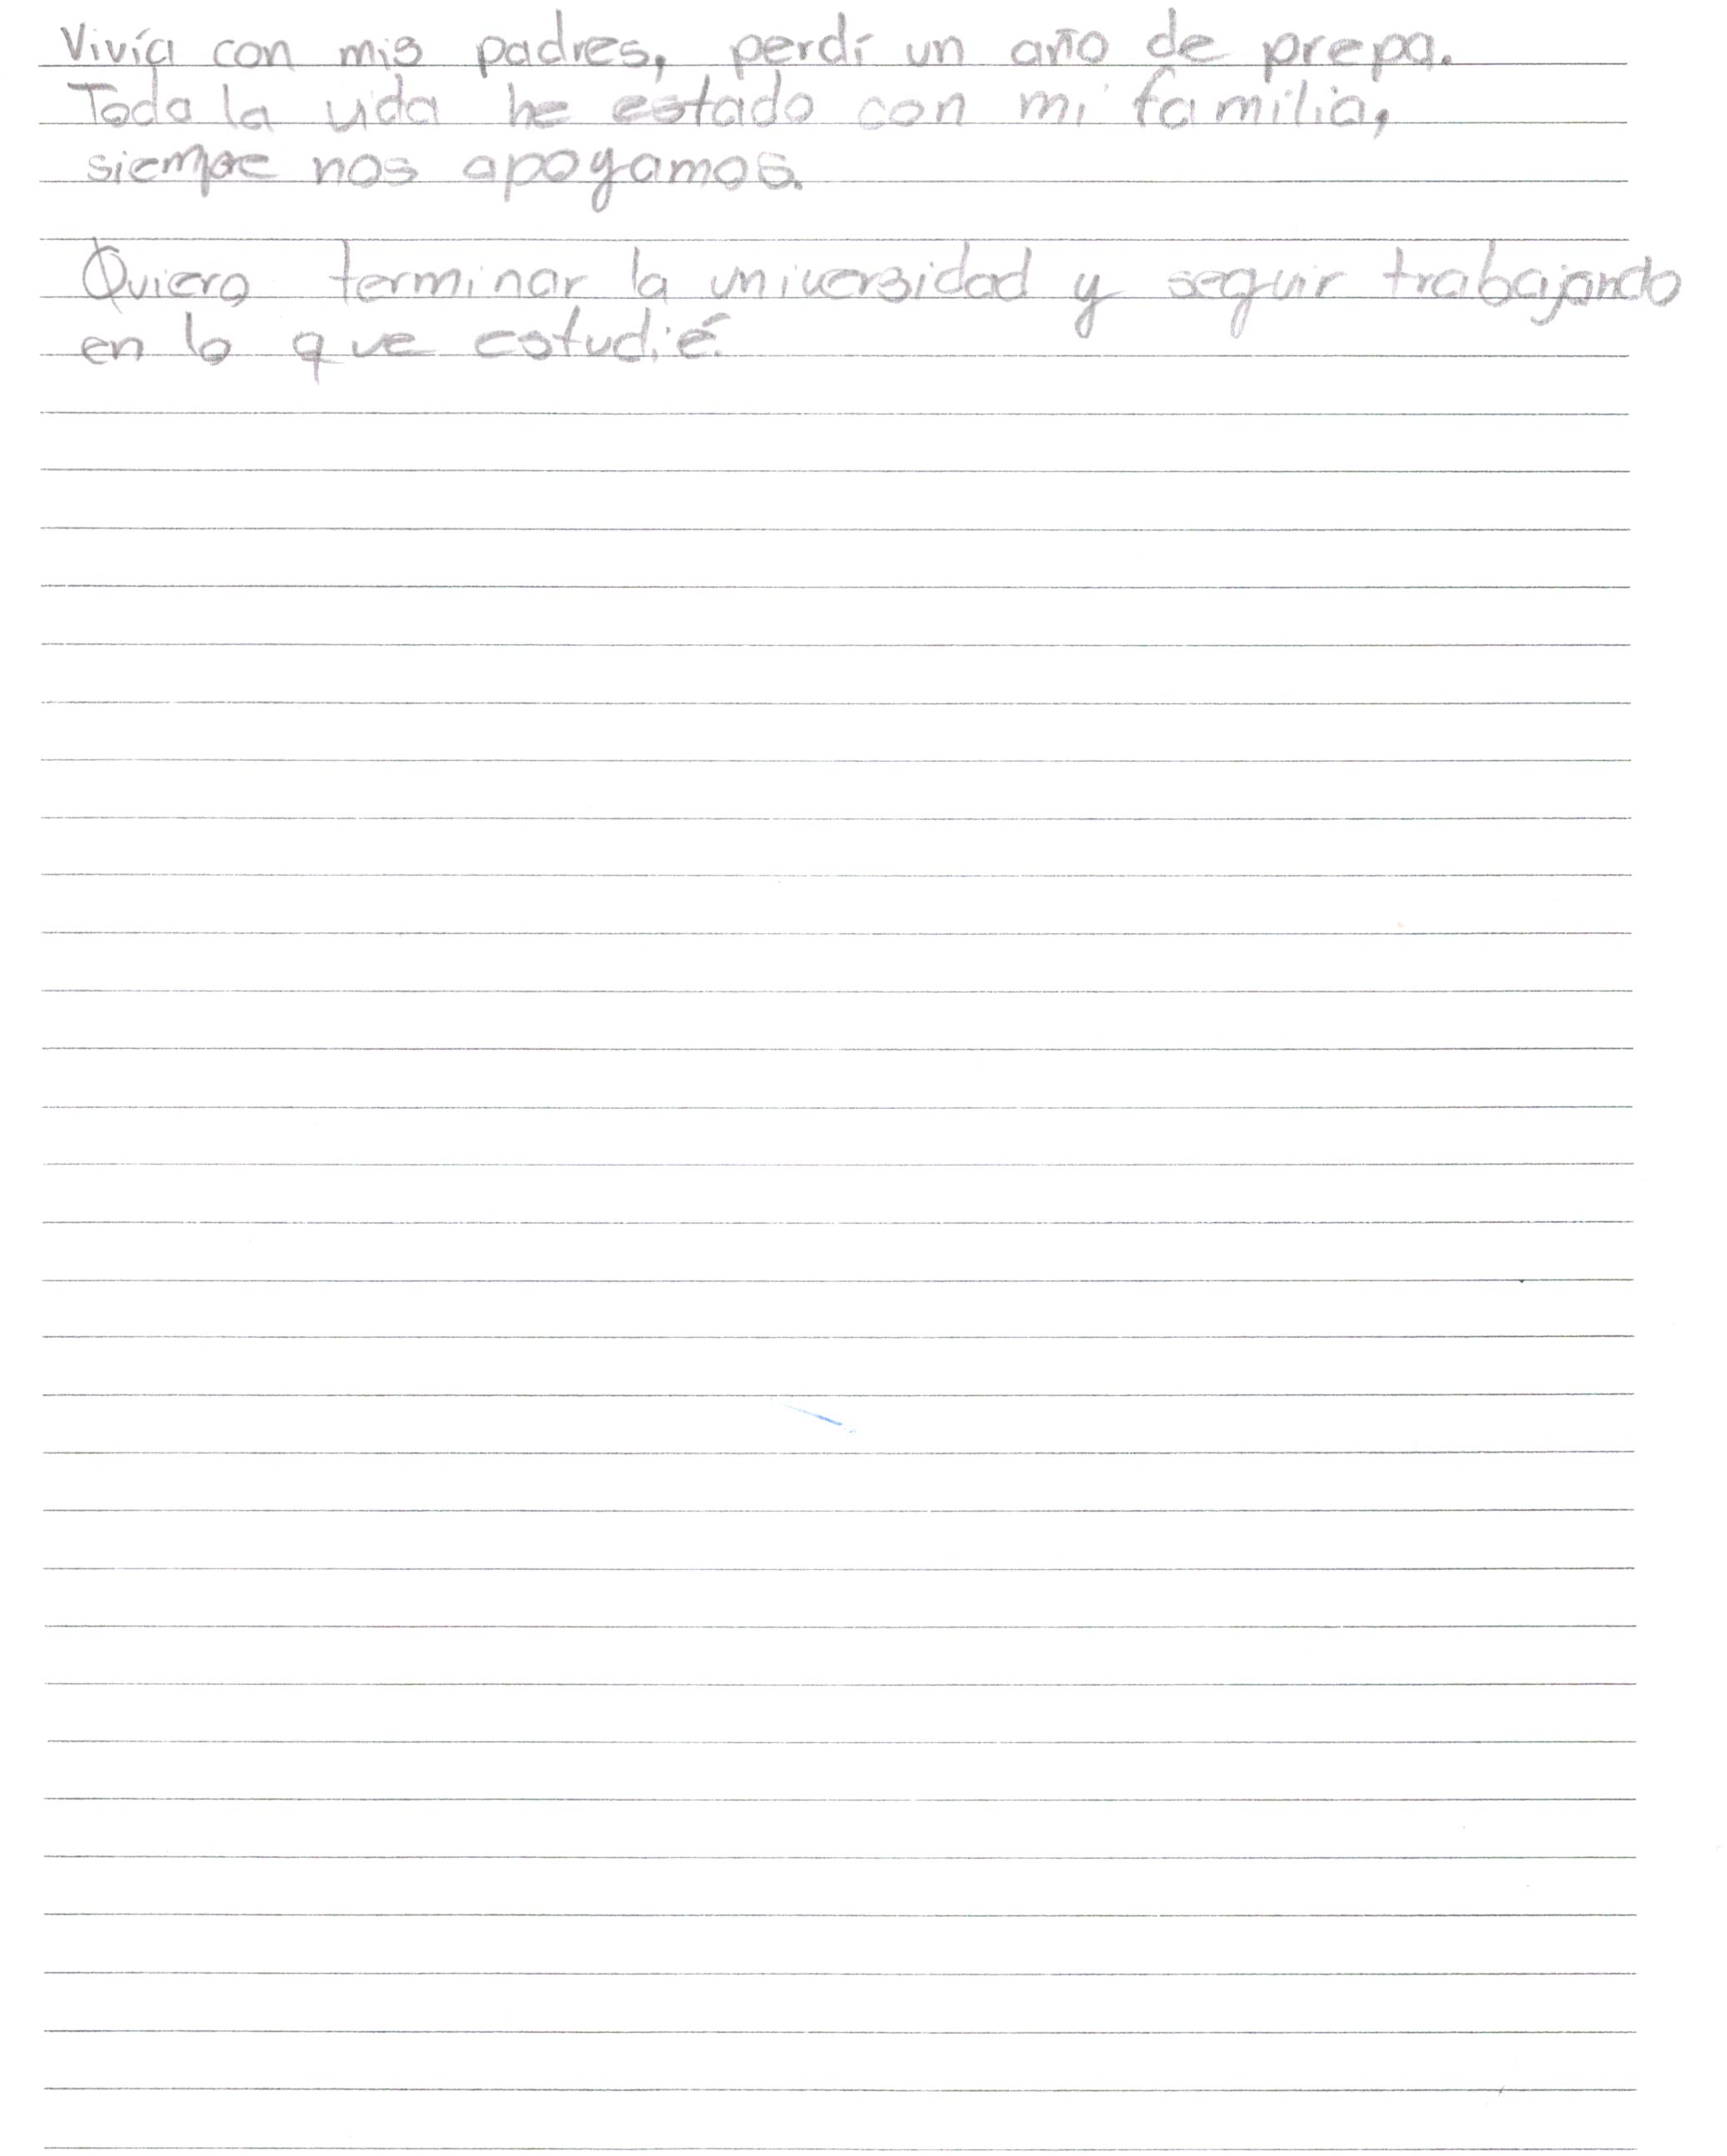 Vivía con mis padres, perdí un año de prepa.
Toda la vida he estado con mi familia,
siempre nos apoyamos.
Quiero terminar la universidad y seguir trabajando
en lo que estudié.